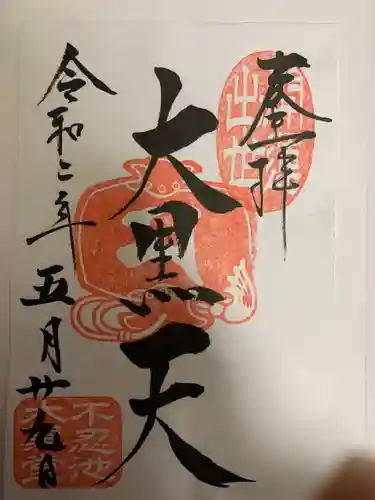 奉拝
大黒天
令和二年
五月廿九日
不忍池
大黒堂